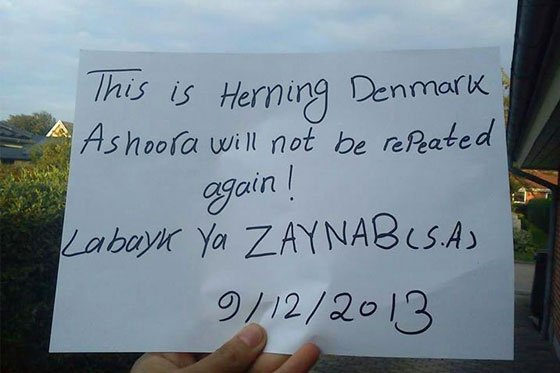 This is Herning Denmark
Ashoora will not be rePeated
again!
Labayk Ya ZAYNAB (S.A)
9/12/2013